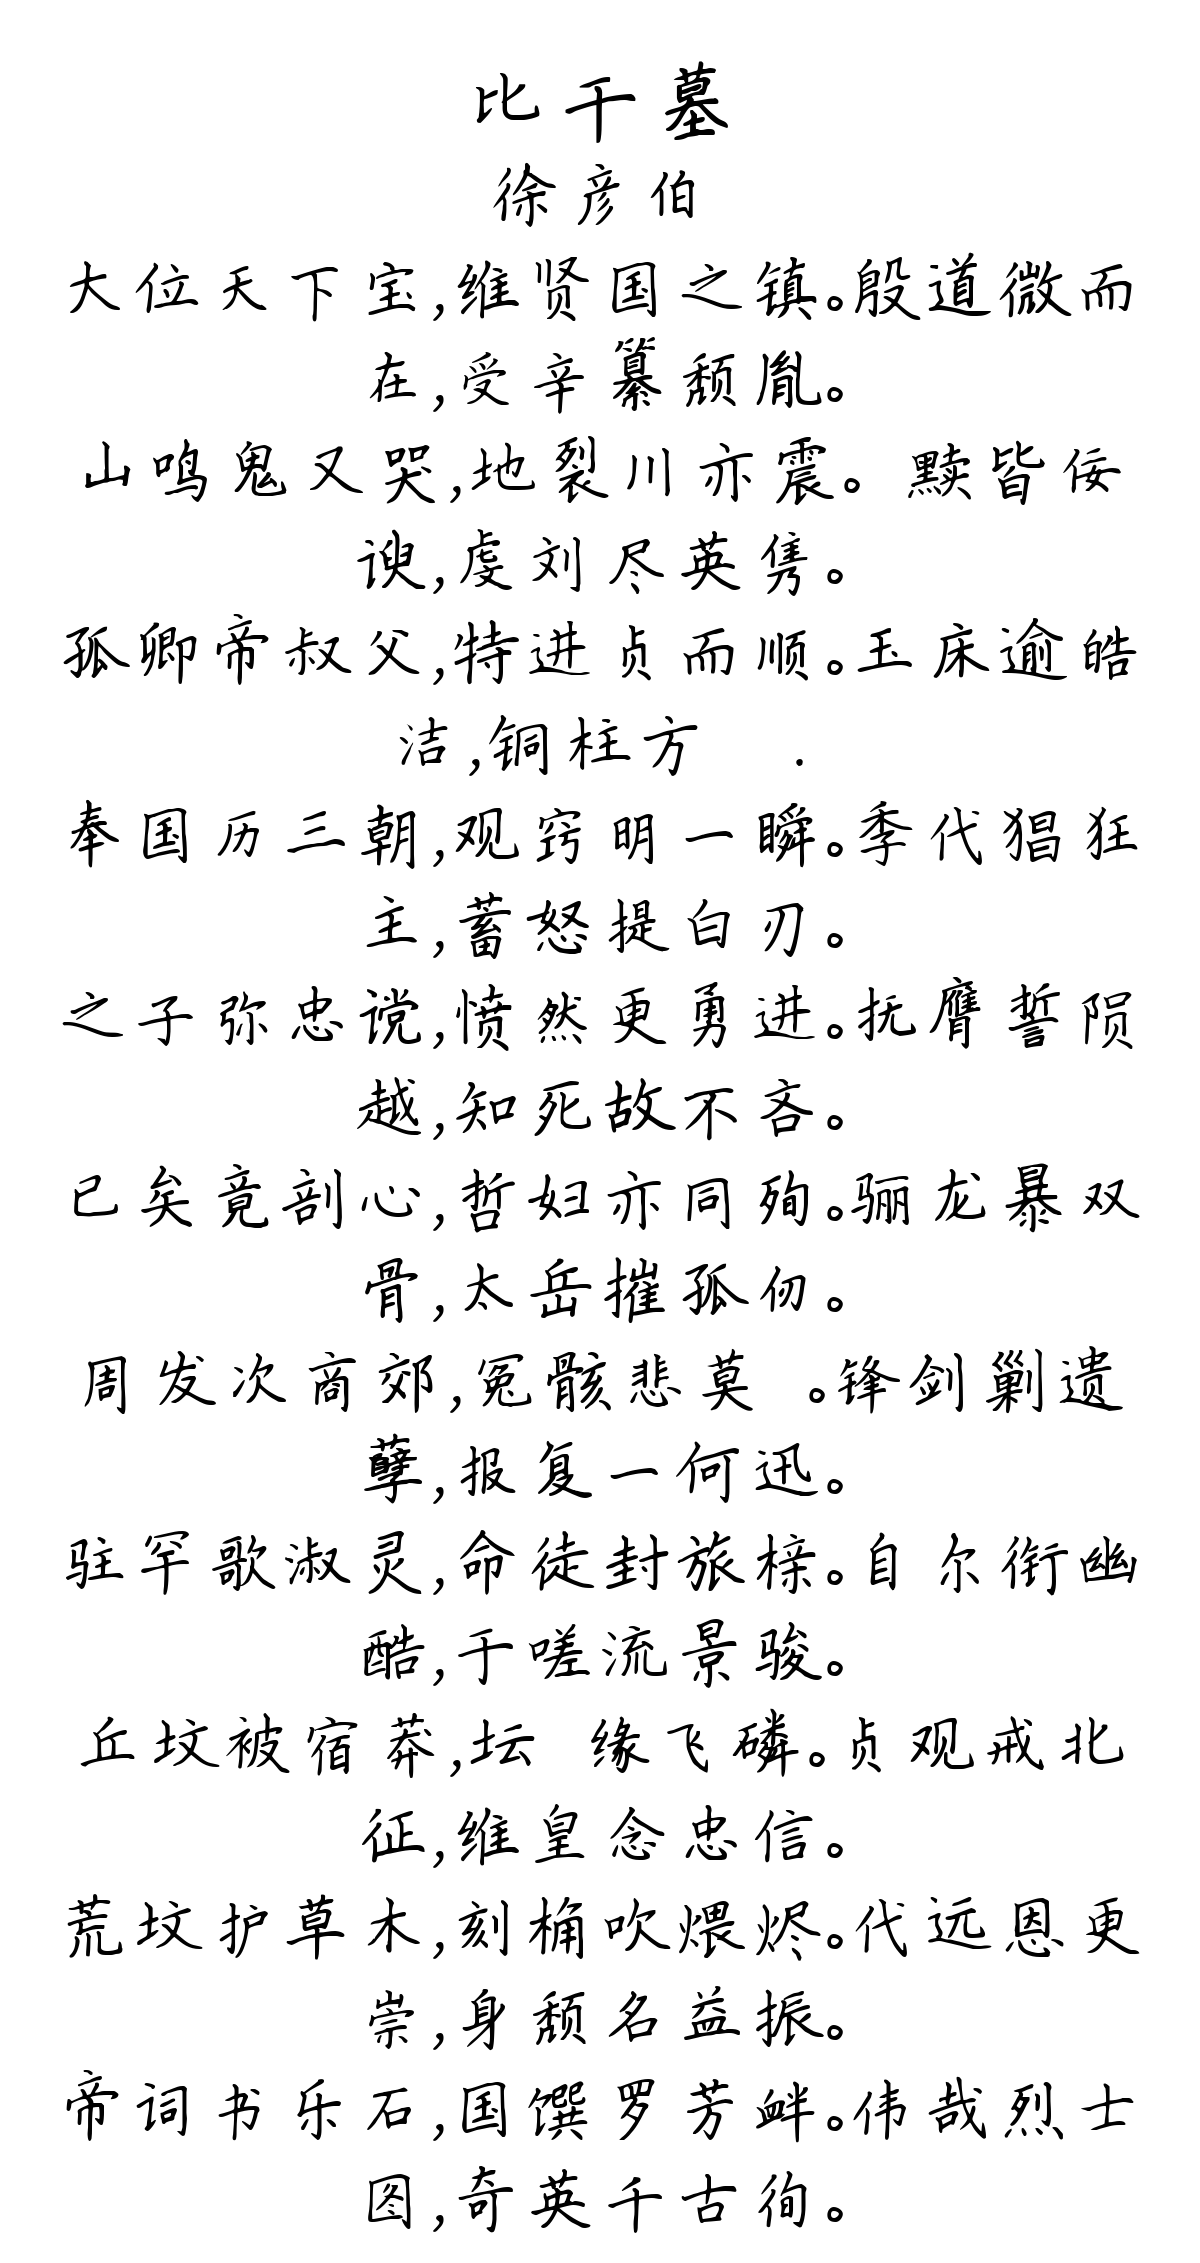 比干墓
徐彦伯
大位天下宝,维贤国之镇。殷道微而
在,受辛纂颓胤。
山鸣鬼又哭,地裂川亦震。 黩皆佞
谀,虔刘尽英隽。
孤卿帝叔父,特进贞而顺。玉床逾皓
洁,铜柱方 .
奉国历三朝,观窍明一瞬。季代猖狂
主,蓄怒提白刃。
之子弥忠谠,愤然更勇进。抚膺誓陨
越,知死故不吝。
已矣竟剖心,哲妇亦同殉。骊龙暴双
骨,太岳摧孤仞。
周发次商郊,冤骸悲莫 。锋剑剿遗
孽,报复一何迅。
驻罕歌淑灵,命徒封旅榇。自尔衔幽
酷,于嗟流景骏。
丘坟被宿莽,坛 缘飞磷。贞观戒北
征,维皇念忠信。
荒坟护草木,刻桷吹煨烬。代远恩更
崇,身颓名益振。
帝词书乐石,国馔罗芳衅。伟哉烈士
图,奇英千古徇。